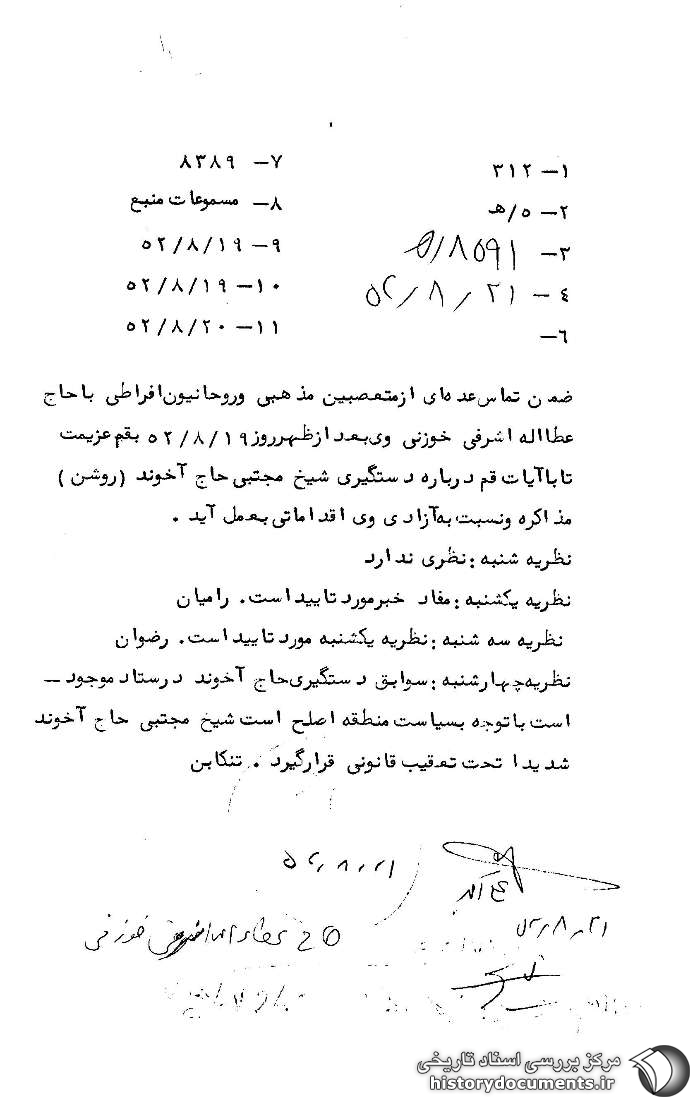 ۱- ۳۱۲
۷- ۸۳۸۹
۲- ۵/هـ
۸- مسموعات منبع
۳- ۸۵۹۱/ه
۹- ۵۲/۸/۱۹
۴- ۵۲/۸/۲۱
۱۰- ۵۲/۸/۱۹
۶-
۱۱- ۵۲/۸/۲۰
ضمن تماس عده‌ای از متعصبین مذهبی و روحانیون افراطی با حاج
عطااله اشرفی خوزنی وی بعد از ظهر روز ۵۲/۸/۱۹ بقم عزیمت
تا با آیات قم درباره دستگیری شیخ مجتبی حاج آخوند (روشن)
مذاکره و نسبت به آزادی وی اقداماتی بعمل آید .
نظریه شنبه : نظری ندارد
نظریه یکشنبه : مفاد خبر مورد تایید است. رامیان
نظریه سه شنبه : نظریه یکشنبه مورد تایید است. رضوان
نظریه چهارشنبه : سوابق دستگیری حاج آخوند در ستاد موجود –
است با توجه بسیاست منطقه اصلح است شیخ مجتبی حاج آخوند
شدیدا تحت تعقیب قانونی قرار گیرد . تنکابن
۵۲/۸/۲۱
۵۲/۸/۲۱
ح عطاءاله اشرفی خوزنی
مرکز بررسی اسناد تاریخی
historydocuments.ir